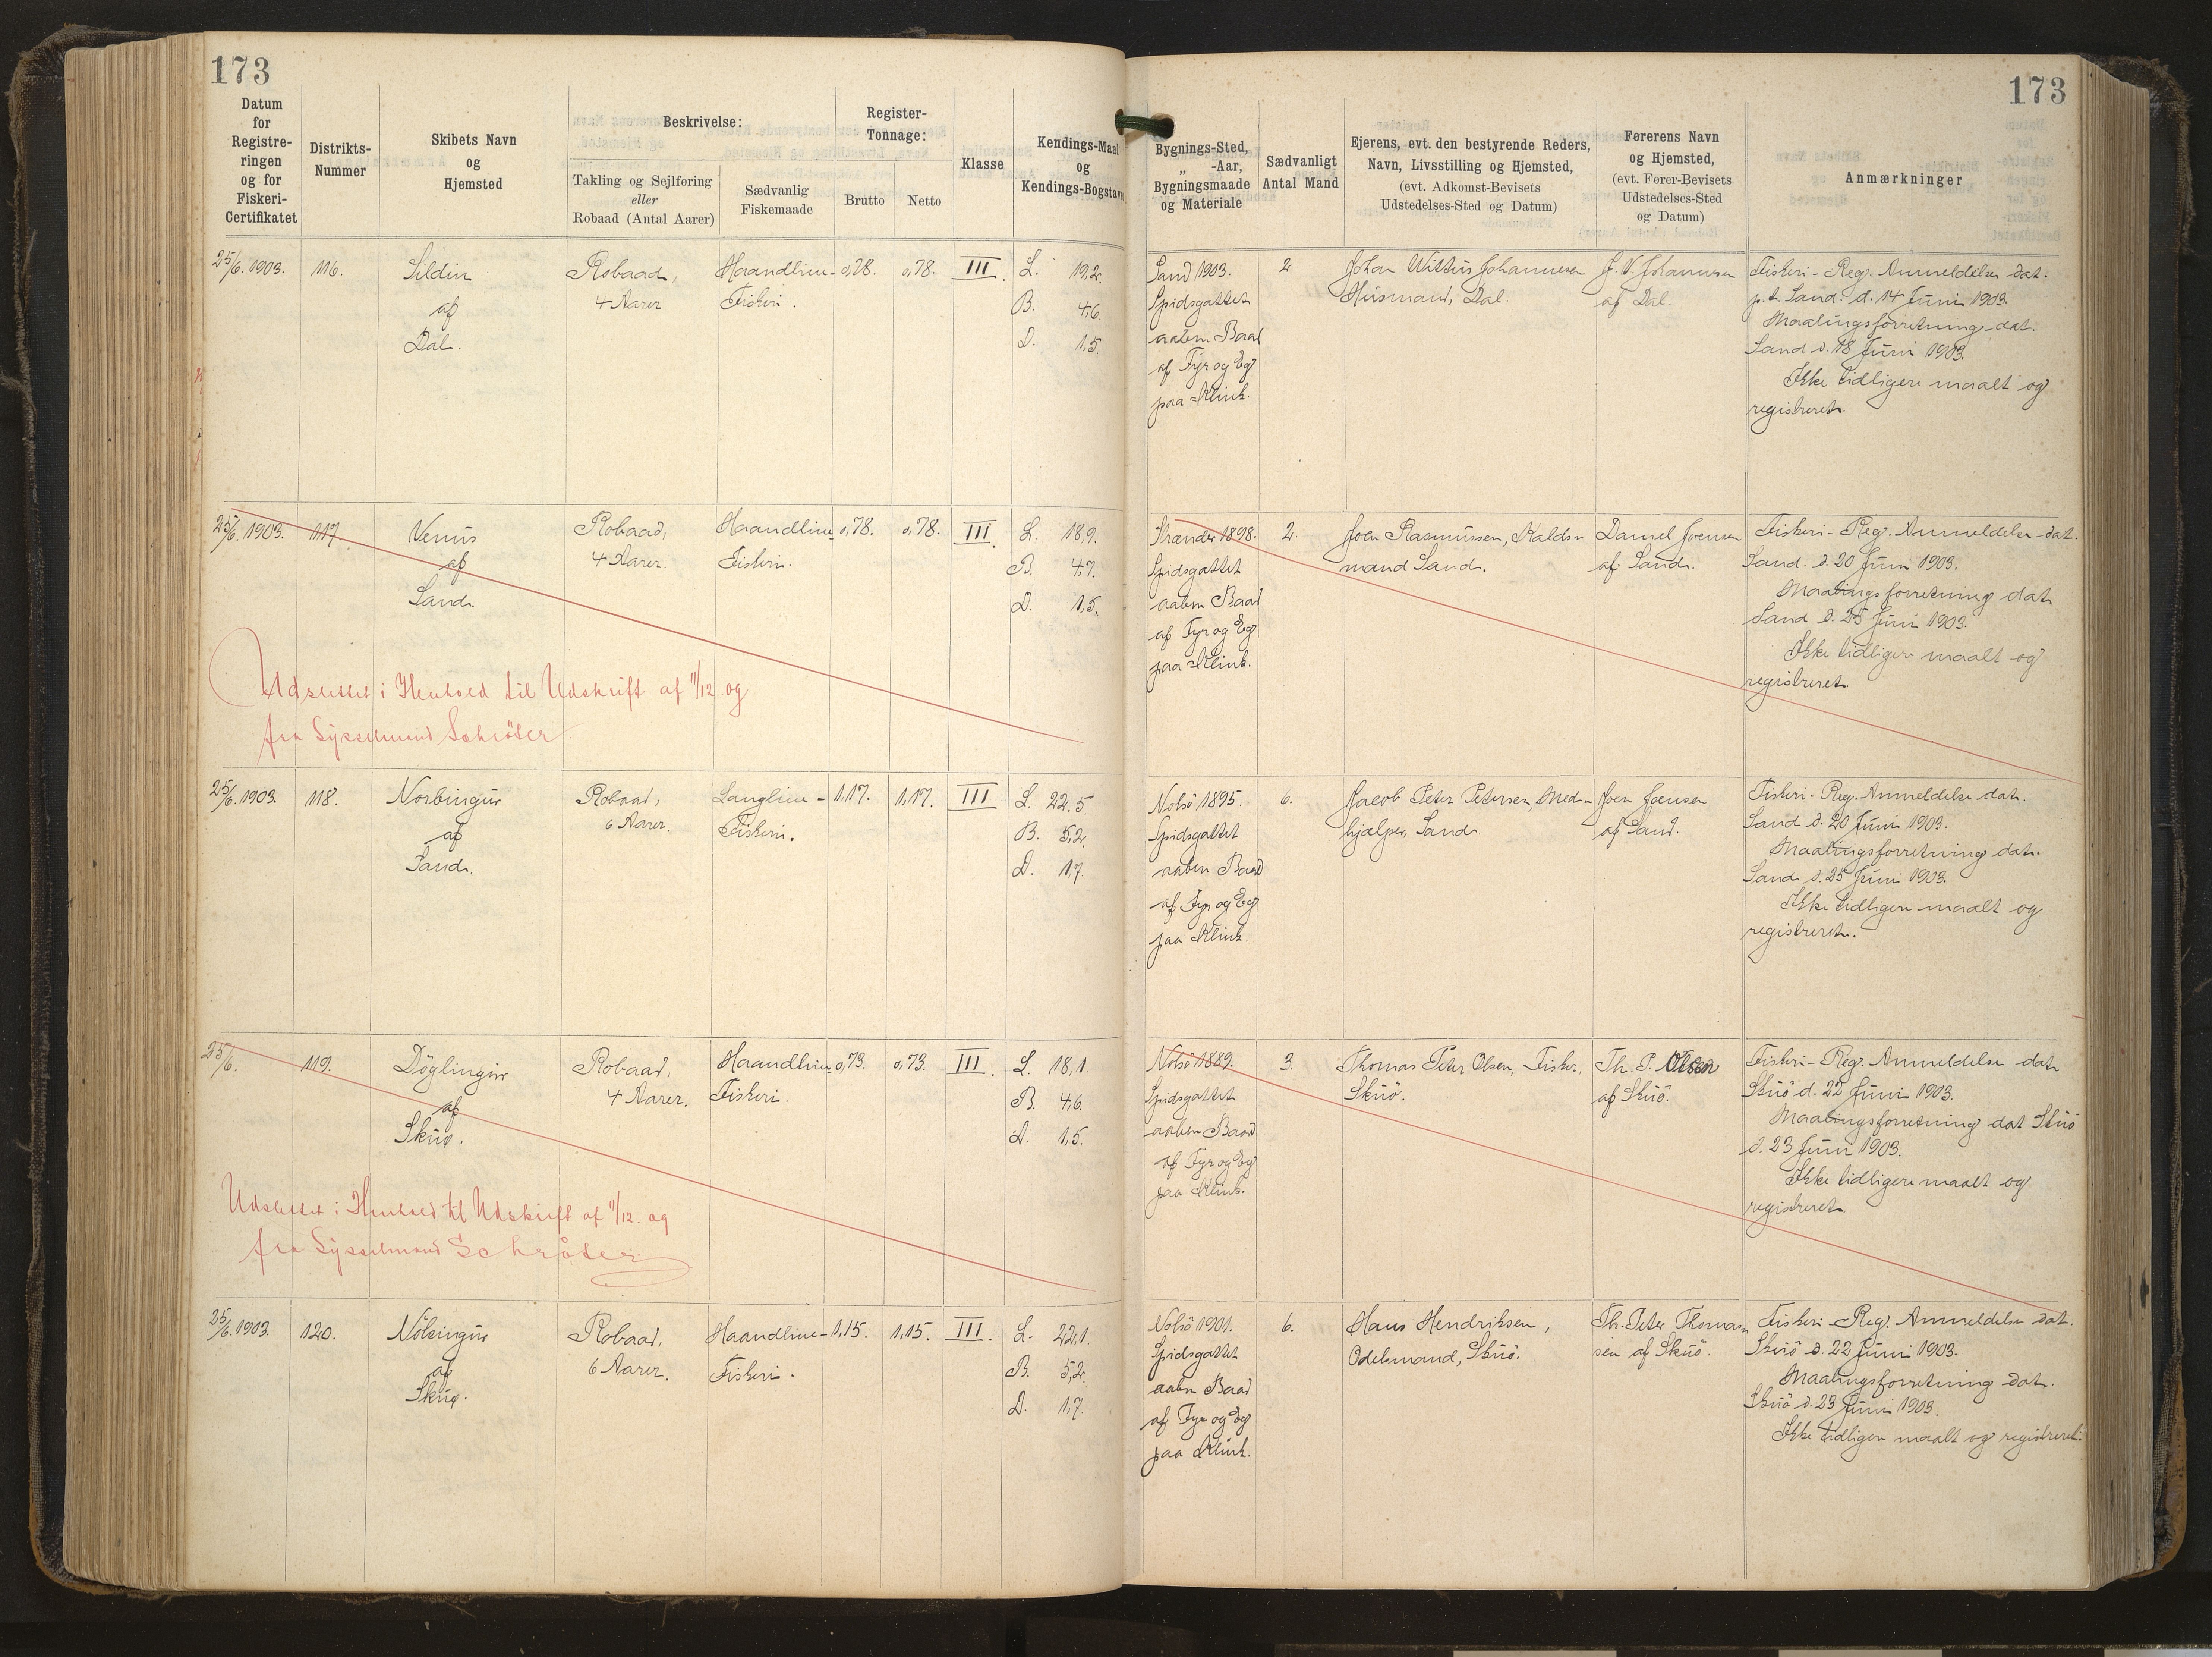 173
173
Datum
for
Registre-
ringen
og for
Fiskeri-
Certifikatet
Distrikts-
Nummer
Skibets Navn
og
Hjemsted
Beskrivelse:
Takling og Sejlføring
eller
Robaad (Antal Aarer)
Sædvanlig
Fiskemaade
Register-
Tonnage:
Brutto
Netto
Klasse
Kendings-Maal
og
Kendings-Bogstaver
Bygnings-Sted,
„ -Aar,
Bygningsmaade
og Materiale
Sædvanligt
Antal Mand
Ejerens, evt. den bestyrende Reders,
Navn, Livsstilling og Hjemsted,
(evt. Adkomst-Bevisets
Udstedelses-Sted og Datum)
Førerens Navn
og Hjemsted,
(evt. Fører-Bevisets
Udstedelses-Sted
og Datum)
Anmærkninger
25/6. 1903.
116.
Sildin
af
Dal.
Robaad,
4 Aarer
Haandline-
Fiskeri.
0,78.
0,78.
III.
L. 19,2.
B. 4,6.
D. 1,5.
Sand 1903.
Spidsgattet
aaben Baad
af Fyr og Eg
paa Klink.
2
Johan Wittus Johannesen
Husmand, Dal.
J. V. Johannesen
af Dal.
Fiskeri-Reg. Anmeldelse dat.
p.t. Sand. d. 14 Juni 1903.
Maalingsforretning dat.
Sand d. 18 Juni 1903.
Ikke tidligere maalt og
registreret.
25/6. 1903.
117.
Venus
af
Sand.
Robaad,
4 Aarer.
Haandline
Fiskeri.
0,78.
0,78.
III.
L. 18,9.
B. 4,7.
D. 1,5.
Strender 1898.
Spidsgattet
aaben Baad
af Fyr og Eg
paa Klink.
2.
Joen Rasmussen, Kalds-
mand Sand.
Daniel Joensen
af Sand.
Fiskeri-Reg. Anmeldelse dat.
Sand. d. 20 Juni 1903.
Maalingsforretning dat.
Sand d. 25 Juni 1903.
Ikke tidligere maalt og
registreret.
Udslettet i Henhold til Udskrift af 11/12. og
fra Sysselmand Schröter
25/6. 1903.
118.
Norbingur
af
Sand.
Robaad,
6 Aarer.
Langline-
Fiskeri.
1,17.
1,17.
III
L. 22,5.
B. 5,2.
D. 1,7.
Nolsö 1895.
Spidsgattet
aaben Baad
af Fyr og Eg
paa Klink.
6.
Jacob Peter Petersen, Med-
hjælper, Sand.
Joen Joensen
af Sand.
Fiskeri-Reg. Anmeldelse dat.
Sand d. 20 Juni 1903.
Maalingsforretning dat.
Sand d. 25 Juni 1903.
Ikke tidligere maalt og
registreret.
25/6.
119.
Döglingur
af
Skuö.
Robaad,
4 Aarer.
Haandline
Fiskeri.
0,73.
0,73.
III.
L. 18,1
B. 4,6.
D. 1,5.
Nolsö 1889.
Spidsgattet
aaben Baad
af Fyr og Eg
paa Klink.
3.
Thomas Peter Olsen, Fisker,
Skuö.
Th. P. Olsen
af Skuö.
Fiskeri-Reg. Anmeldelse dat.
Skuö d. 22 Juni 1903.
Maalingsforretning dat Skuö
d. 23 Juni 1903.
Ikke tidligere maalt og
registreret.
Udslettet i Henhold til Udskrift af 11/12. og
fra Sysselmand Schröter
25/6. 1903.
120.
Nölsingur
af
Skuö.
Robaad,
6 Aarer.
Haandline-
Fiskeri.
1,15.
1,15.
III.
L. 22,1.
B. 5,2.
D. 1,7.
Nolsö 1901.
Spidsgattet
aaben Baad
af Fyr og Eg
paa Klink.
6.
Hans Hendriksen,
Odelsmand, Skuö.
Th. Peter Thomas-
sen af Skuö.
Fiskeri-Reg. Anmeldelse dat.
Skuö d. 22 Juni 1903.
Maalingsforretning dat.
Skuö d. 23 Juni 1903.
Ikke tidligere maalt og registreret.